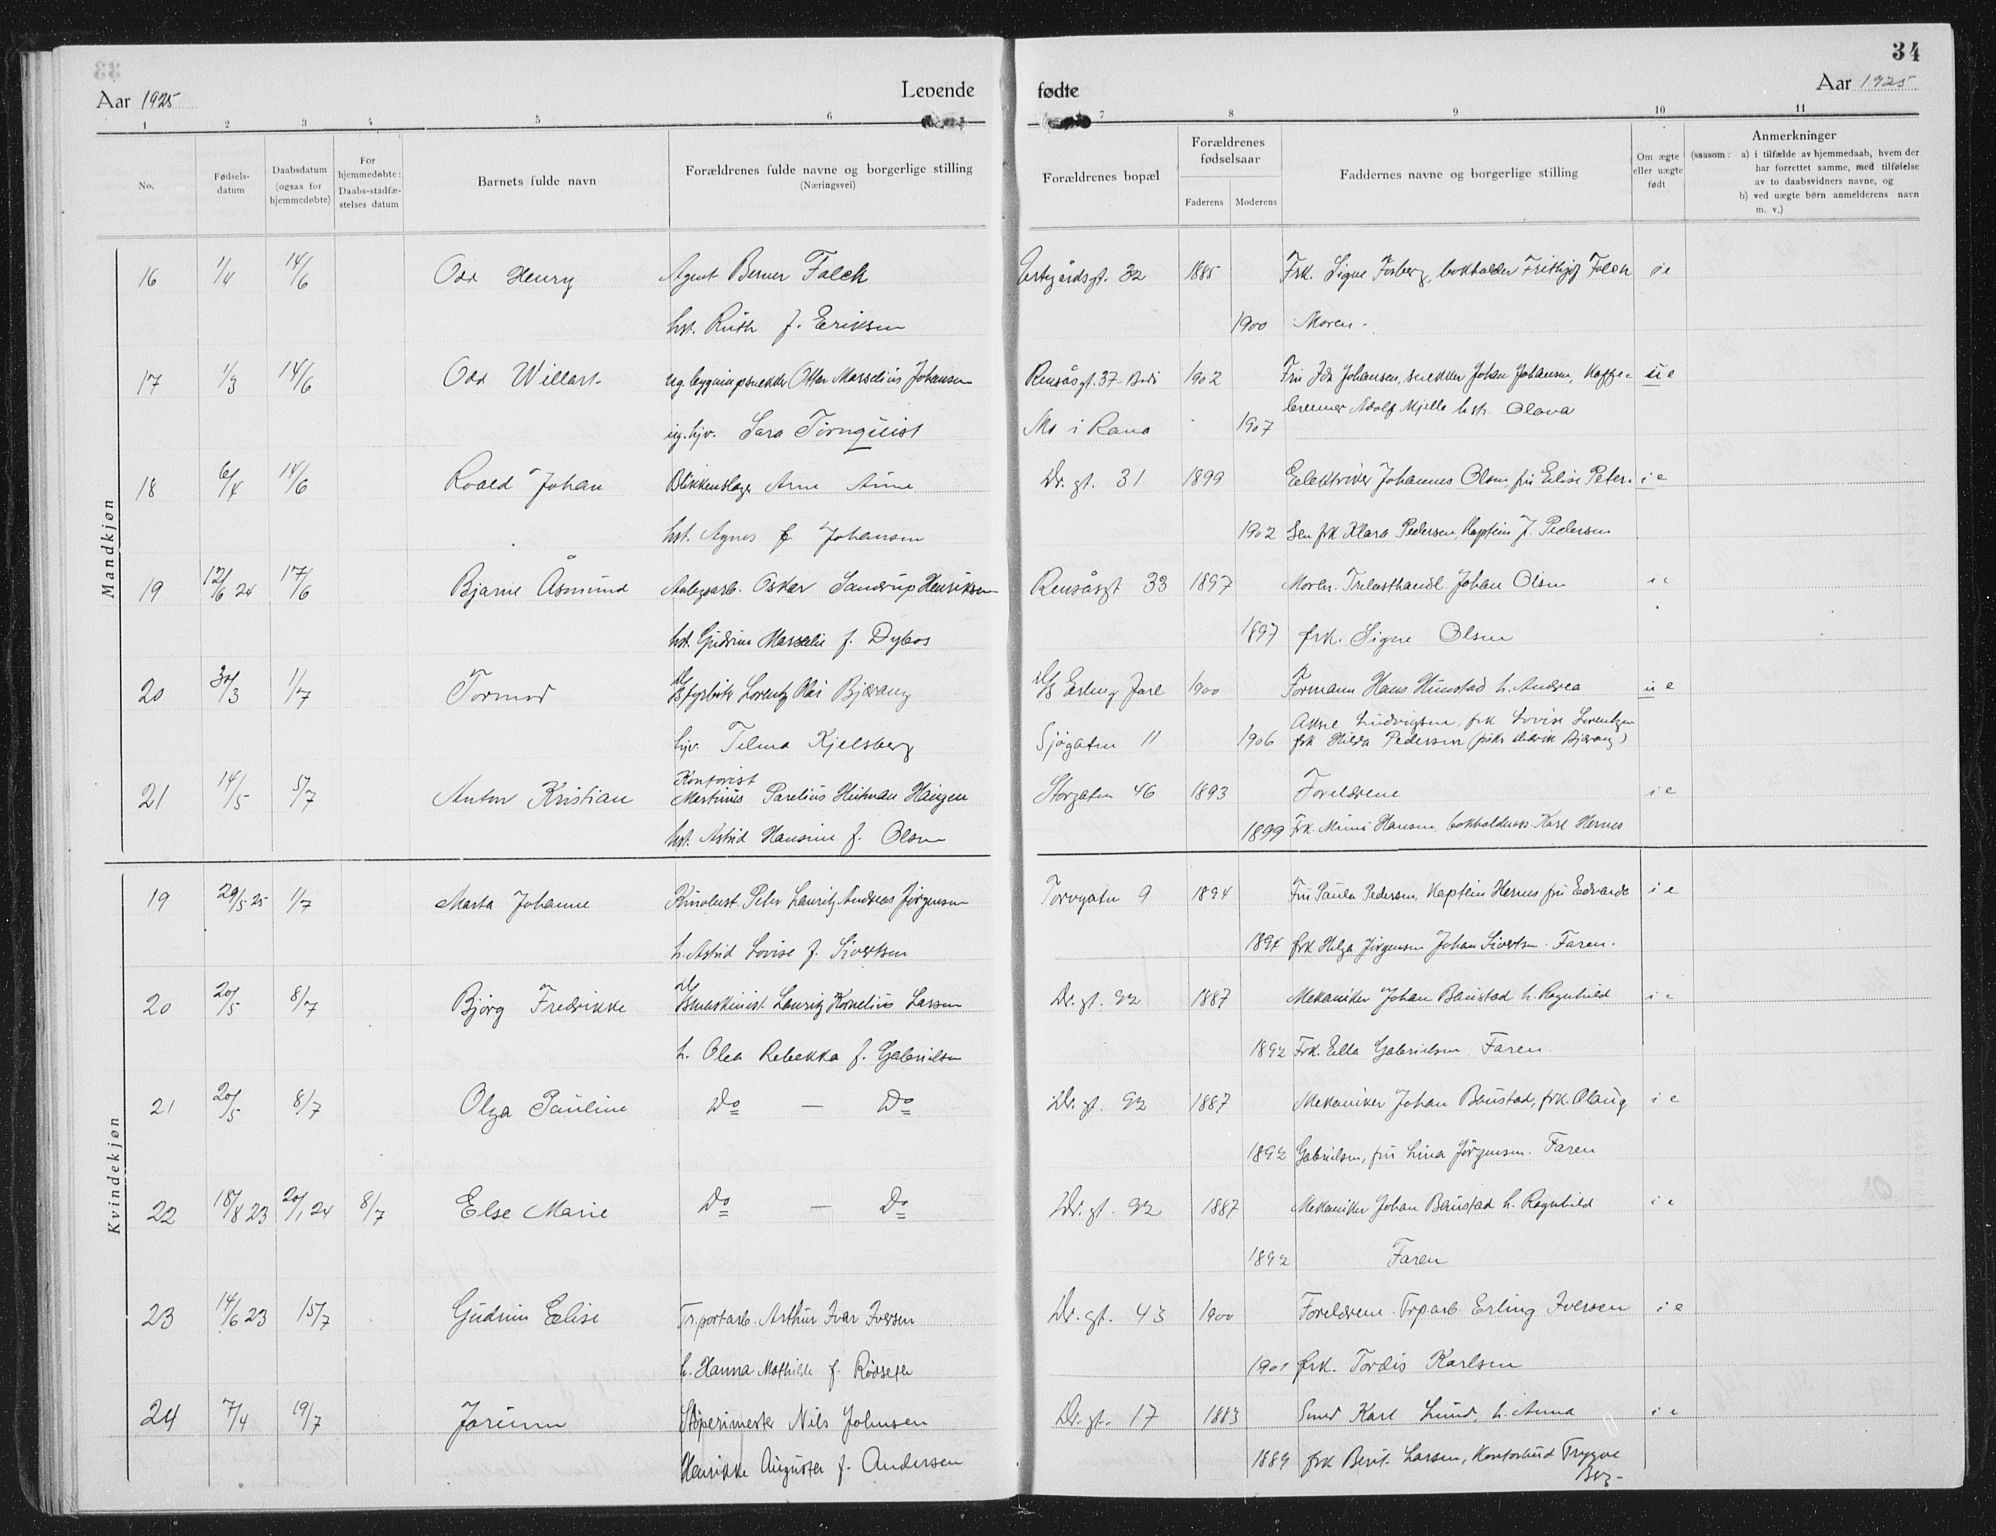 34
Aar 1925
Levende
fødte
Aar 1925
1 2 3 4 5 6 7 8 9 10 11
No.
Fødsels-
datum
Daabsdatum
(ogsaa for
hjemmedøbte)
For
hjemmedøbte:
Daabs-stadfæ-
stelses datum
Barnets fulde navn
Forældrenes fulde navne og borgerlige stilling
(Næringsvei)
Forældrenes bopæl
Forældrenes
fødselsaar
Faderens
Moderens
Faddernes navne og borgerlige stilling
Om ægte
eller uægte
født
Anmerkninger
(saasom: a) i tilfælde av hjemmedaab, hvem der
har forrettet samme, med tilføielse
av to daabsvidners navne, og
b) ved uægte børn anmelderens navn
m. v.)
Mandkjøn
16 1/4 14/6 Odd Henry Agent Berner Falck 32 1885 Frk. Signe Forberg, bokholder Frithjof Falck ie
hst. Ruth f. Eriksen 1900 Moren.
17 1/3 14/6 Odd Willart ug. bygningssnekker Ottar Marselius Johansen Rensåsgt. 37 Bodö 1902 Fru Ida Johansen, snekker Johan Johansen, Kaffe- ue
brenner Adolf Mjelle hst. Olava
ug. hjv. Sara Törnquist Mo i Rana 1907
18 6/4 14/6 Roald Johan Blikkenslager Arne Aune Dr. gt. 31 1899 Elektriker Johannes Olsen, fru Elise Peter- ie
hst. Agnes f. Johansen 1902 sen frk Klara Pedersen, Kaptein J. Pedersen
19 12/6 24 17/6 Bjarne Åsmund Anlegsarb. Oskar Sandrup Henriksen Rensåsgt 33 1897 Moren. Trelasthandl. Johan Olsen ie
hst. Gudrun Marselie f. Dybos 1897 frk. Signe Olsen
20 30/3 1/7 Tormod Lorentz Bjærang Erling Jarl 1900 Formann Hans Hunstad h. Andrea ue
Aksel Ludvigsen, frk Lovise Lorentzen
hjv. Telma Kjelsberg Sjøgaten 11 1906 frk Hilda Pedersen Bjærang)
21 14/5 5/7 Anton Kristian Kontorist
Martinus Parelius Haugen Storgaten 46 1893 Foreldrene ie
hst. Astrid Hansine f. Olsen 1899 Frk. Mimi Hansen, Karl Hernes
Kvindekjøn
19 29/5 25 1/7 Marta Johanne Peter Lauritz Andreas Jörgensen Torvgaten 9 1894 Fru Paula Pedersen, Kaptein Hernes fru Edvarda ie
h. Astrid Lovise f. Sivertsen 1894 frk Helga Jörgensen Johan Sivertsen. Faren.
20 20/5 8/7 Bjørg Fredrikke Lauritz Kornelius Larsen Dr. gt. 92 1887 Mekaniker Johan Baustad h. Ragnhild ie
h. Olea Rebekka f. Gabrielsen 1892 Frk. Ella Gabrielsen Faren.
21 20/5 8/7 Olga Pauline Do — Do Dr. gt. 92 1887 Mekaniker Johan Baustad, frk. Olaug ie
1892 Gabrielsen, fru Lina Jørgensen. Faren
22 18/8 23 20/1 24 8/7 Else Marie Do — Do Dr. gt. 92 1887 Mekaniker Johan Baustad h. Ragnhild ie
1892 Faren
23 14/6 23 15/7 Gudrun Elise Tr.portarb. Arthur Ivar Iversen Dr. gt. 43 1900 Foreldrene. Trp.arb. Erling Iversen ie
h. Hanna Mathilde f. Rösseter 1901 frk. Tordis Karlsen
24 7/4 19/7 Jorunn Støperimester Nils Johnsen Dr. gt. 17 1883 Smed Karl Lund, h. Anna ie
Henrikke Augusta f. Andersen 1889 frk Berit Larsen, Kontorbud Trygve
Berg-